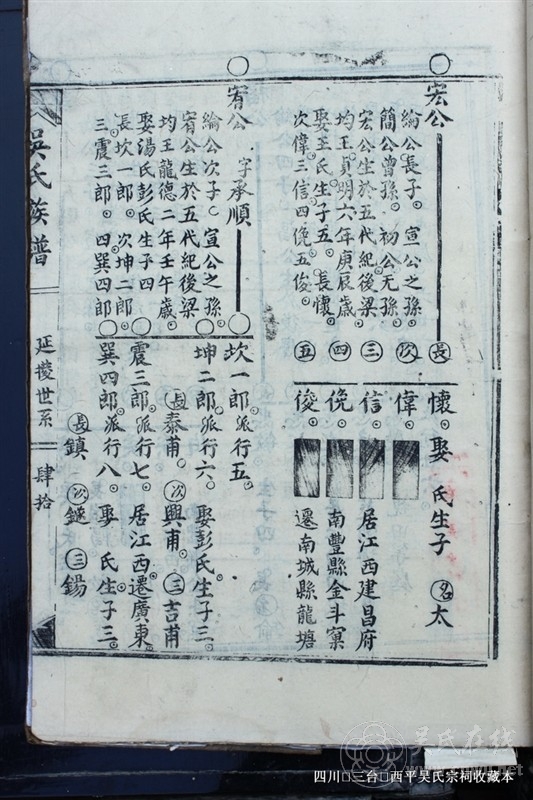 宏公
綸公長子。宣公之孫。
簡公曾孫。初公元孫。
宏公生於五代紀後梁
均王貞明六年庚辰歲。
娶王氏生子五。長懷。
次偉三信四俛五俊。
長 懷。娶 氏生子 名太
次 偉。
三 信。 居江西建昌府
四 俛。 南豐縣金斗窠
五 俊。 遷南城縣龍塘
宥公 字承順
綸公次子。宣公之孫。
宥公生於五代紀後梁
均王龍德二年壬午歲。
娶湯氏彭氏生子四
長坎一郎。次坤二郎。
三震三郎。四巽四郎。
坎一郎。派行五。
坤二郎。派行六。娶彭氏。生子三。
長泰甫。次興甫。三吉甫
震三郎。派行七。居江西。遷廣東。
巽四郎。派行八。娶 氏。生子三。
長鎮 次鐩 三鍚
吳氏族譜
延陵世系
肆拾
吴氏在线
四川□三台□西平吴氏宗祠收藏本